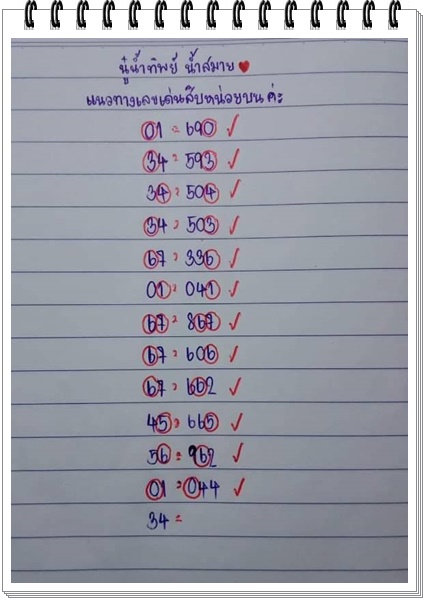 นู๋น้ำทิพย์ น้ำสมาย
แนวทางเลขเด่นสิบหน่อยบน ค่ะ
01 = 690 ✓
34 = 593 ✓
34 = 504 ✓
34 = 503 ✓
67 = 336 ✓
01 = 041 ✓
67 = 867 ✓
67 = 606 ✓
67 = 662 ✓
45 = 665 ✓
56 = 962 ✓
01 = 044 ✓
34 =